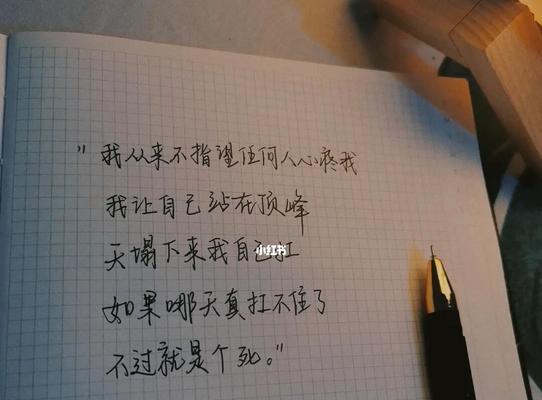 "我从来不指望任何人心疼我
我让自己站在顶峰
天塌下来我自己扛
小红书
如果哪天真扛不住了
不过就是个死。"